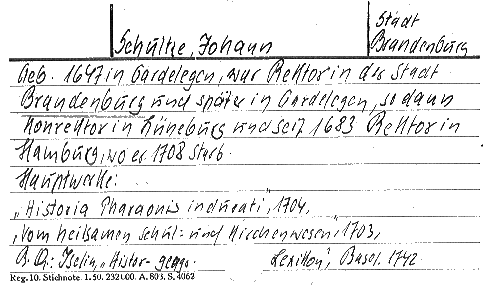 Schultze, Johann
Stadt
Brandenburg
Geb. 1647 in Gardelegen, war Rektor in der Stadt
Brandenburg und später in Gardelegen, so dann
Konrektor in Lüneburg und seit 1683 Rektor in
Hamburg, wo er 1708 starb.
Hauptwerke:
„Historia Pharaonis indurati, 1704,
„Vom heilsamen Schul- und Kirchenwesen", 1703,
B.Q.: Iselin, „Histor- geogr. Lexikon", Basel. 1742
Reg. 10. Stichnote. 1. 50. 232000. A. 803. S. 4062